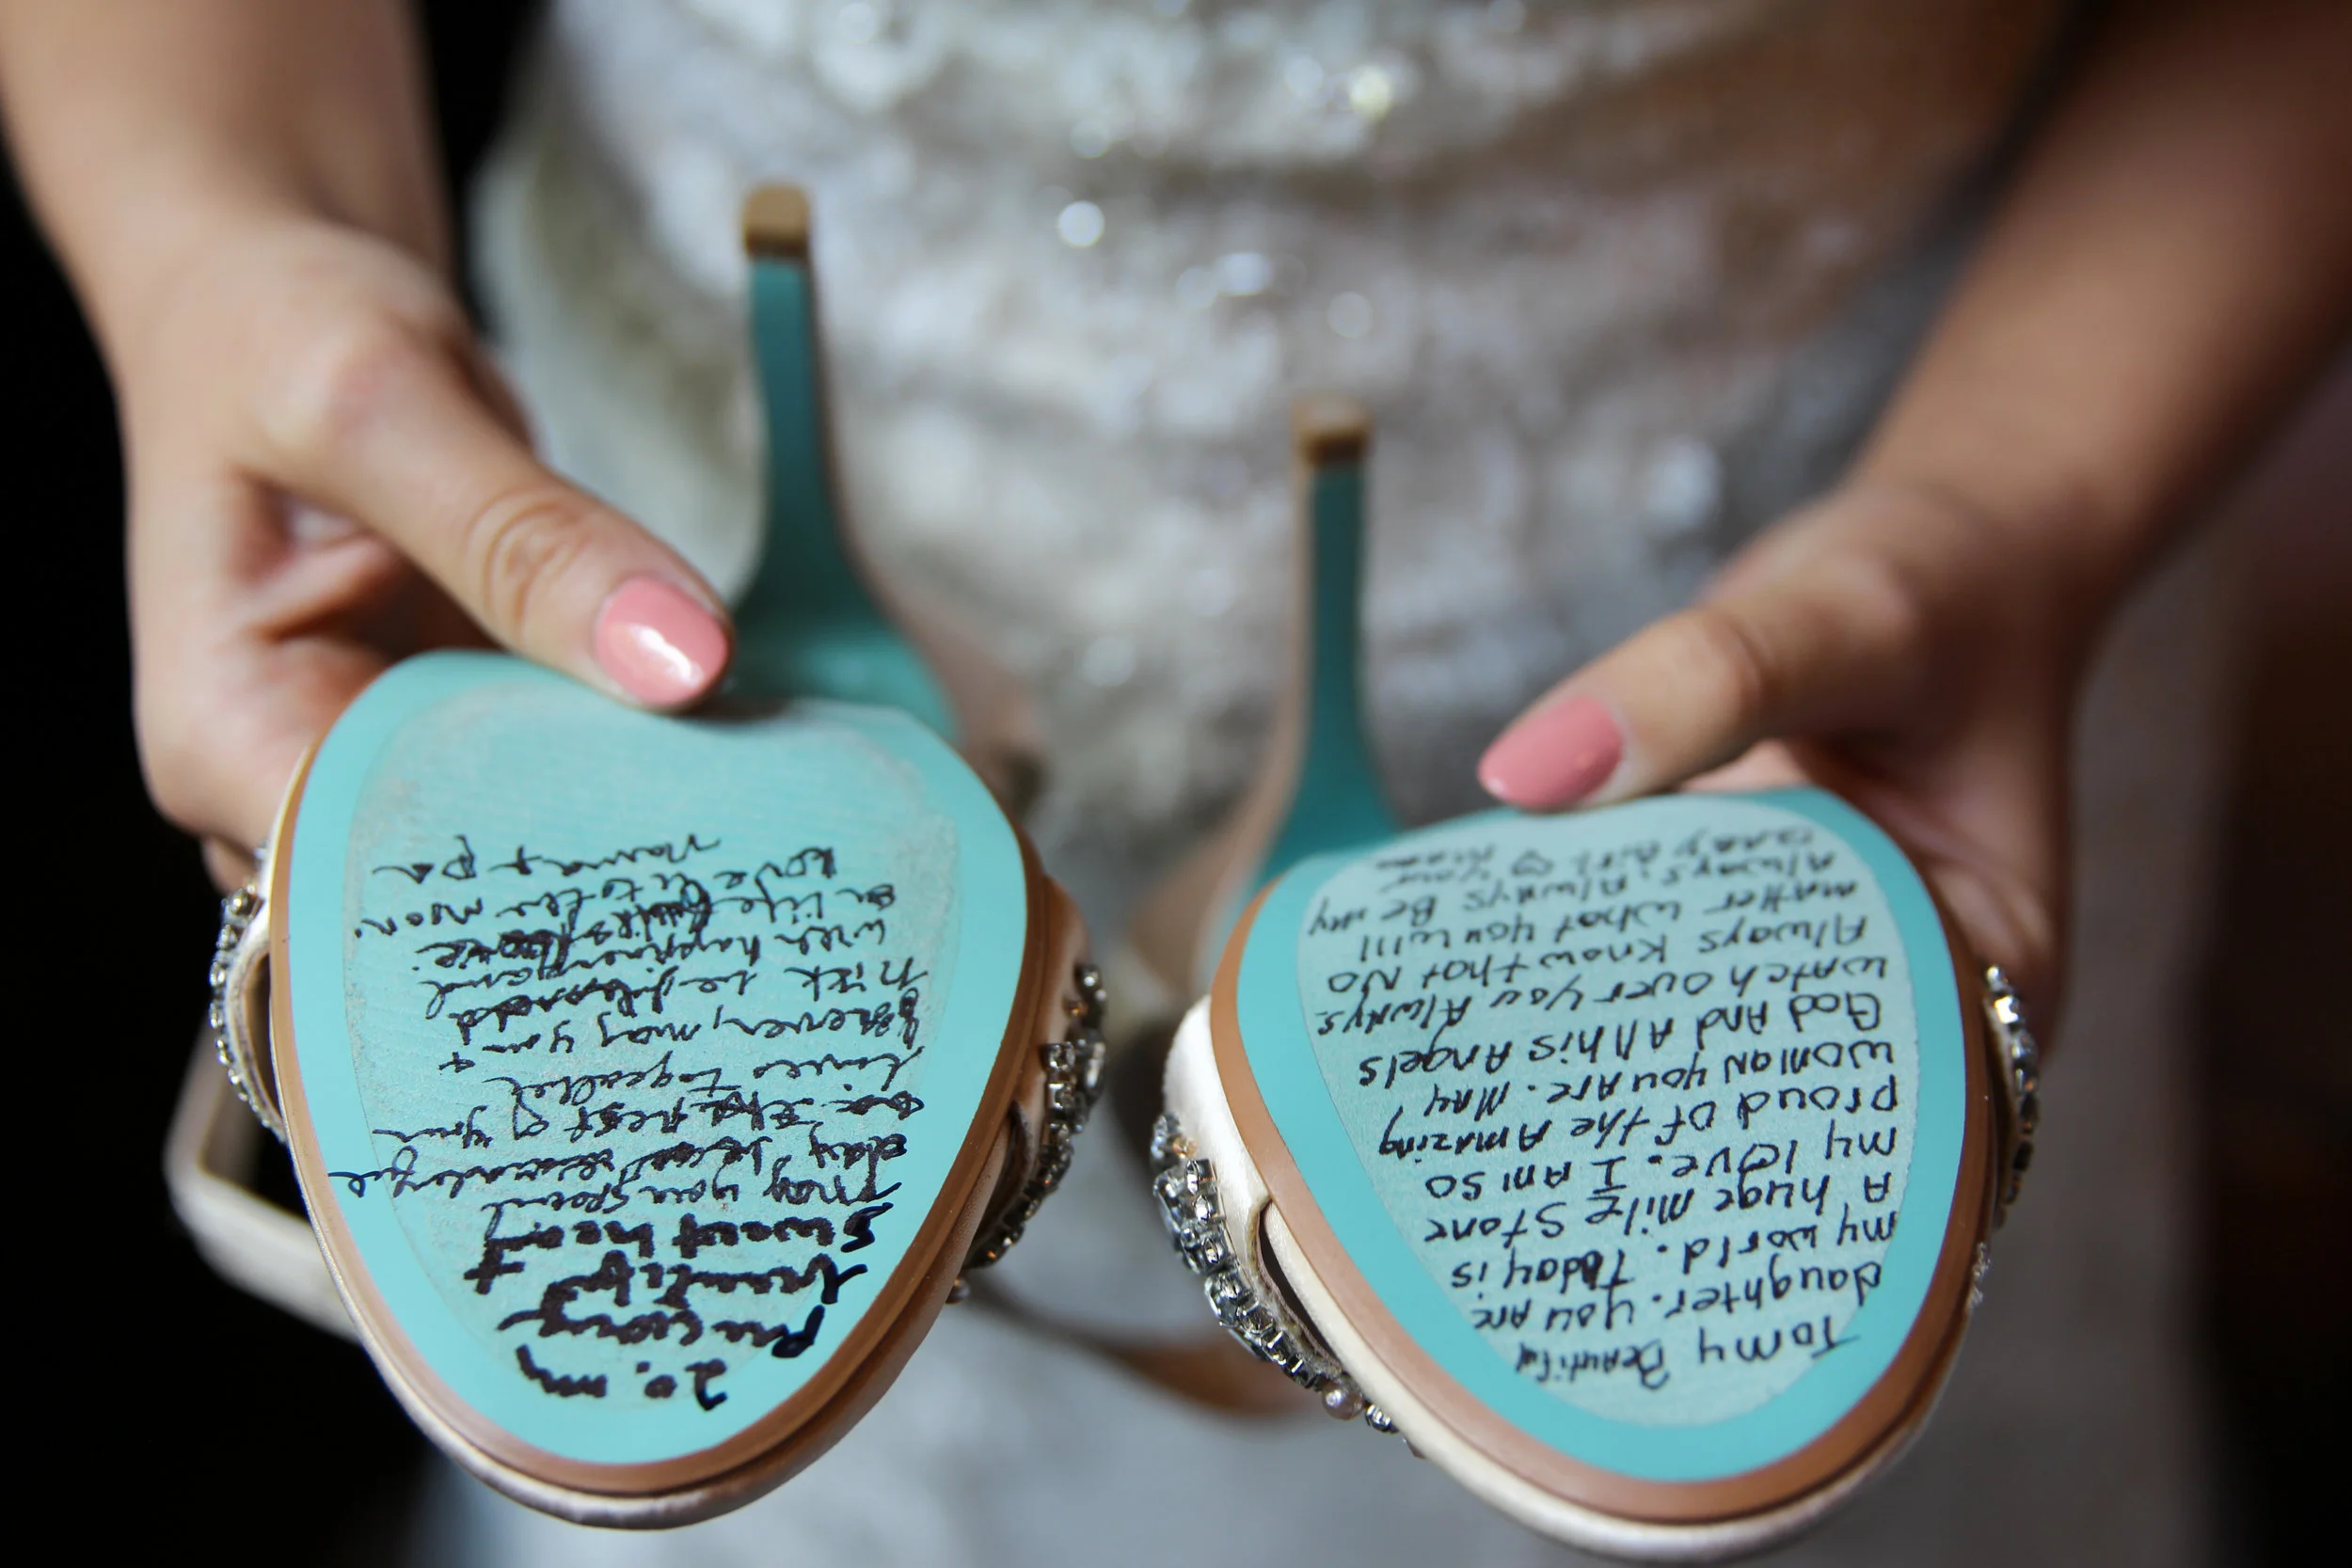 To my Beautiful
daughter. You are
my world. Today is
A huge mile Stone
my love. I am so
proud of the Amazing
woman you are. May
God and All his Angels
watch over you Always.
Always know that No
matter what you will
Always, Always Be my
Baby Girl ♡ your Mom
my
Precious
beautiful
Sweetheart
may you spend
day
the rest of your
lives together
forever, may you +
Nick be
with happiness and
on life
Love to the moon.
Nana + Pa